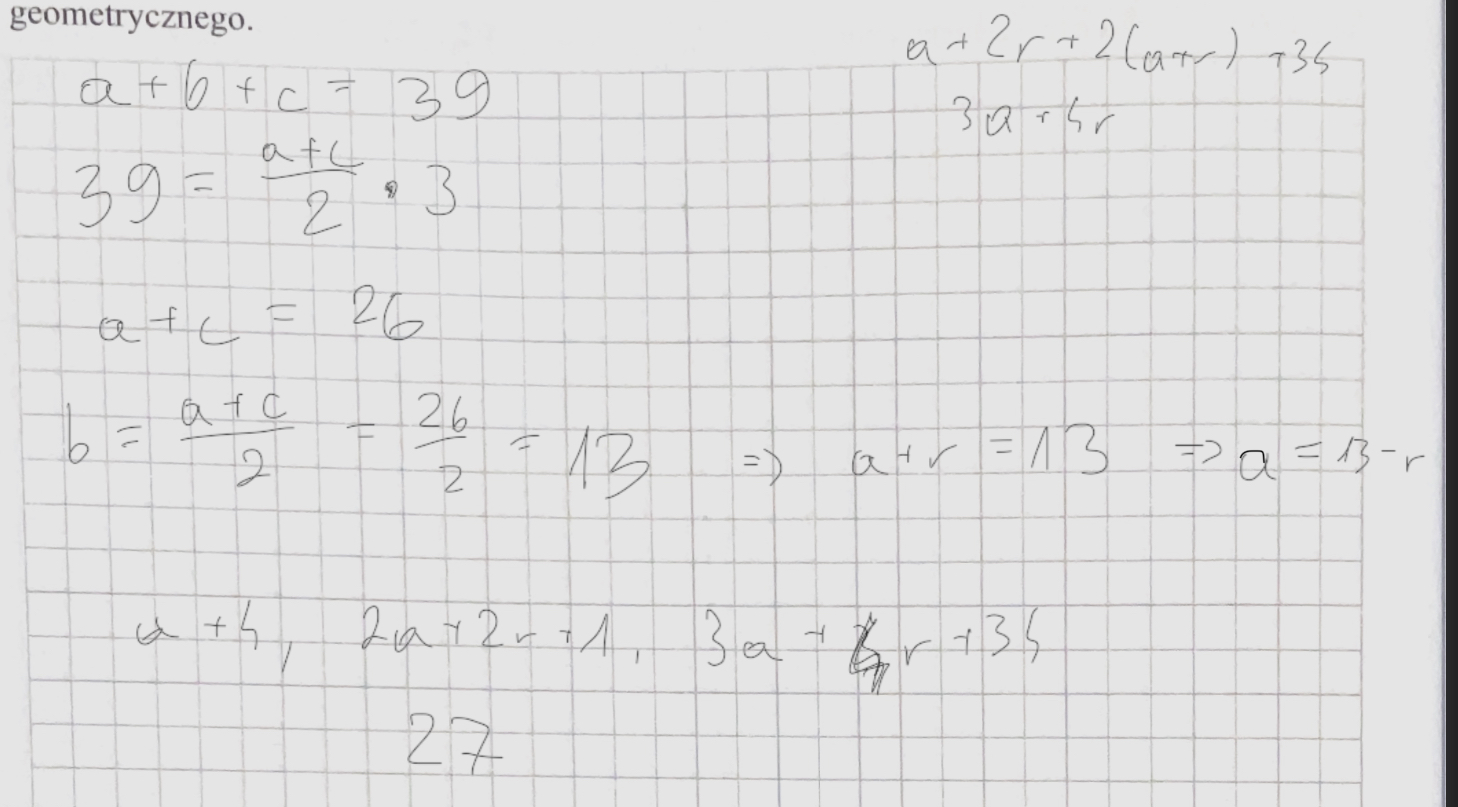 geometrycznego.
a + 2r + 2(a+r) + 34
3a + 4r
a + b + c = 39
39 = \frac{a+c}{2} · 3
a + c = 26
b = \frac{a+c}{2} = \frac{26}{2} = 13 => a + r = 13 => a = 13 - r
a + 4, 2a + 2r + 1, 3a + 4r + 34
27